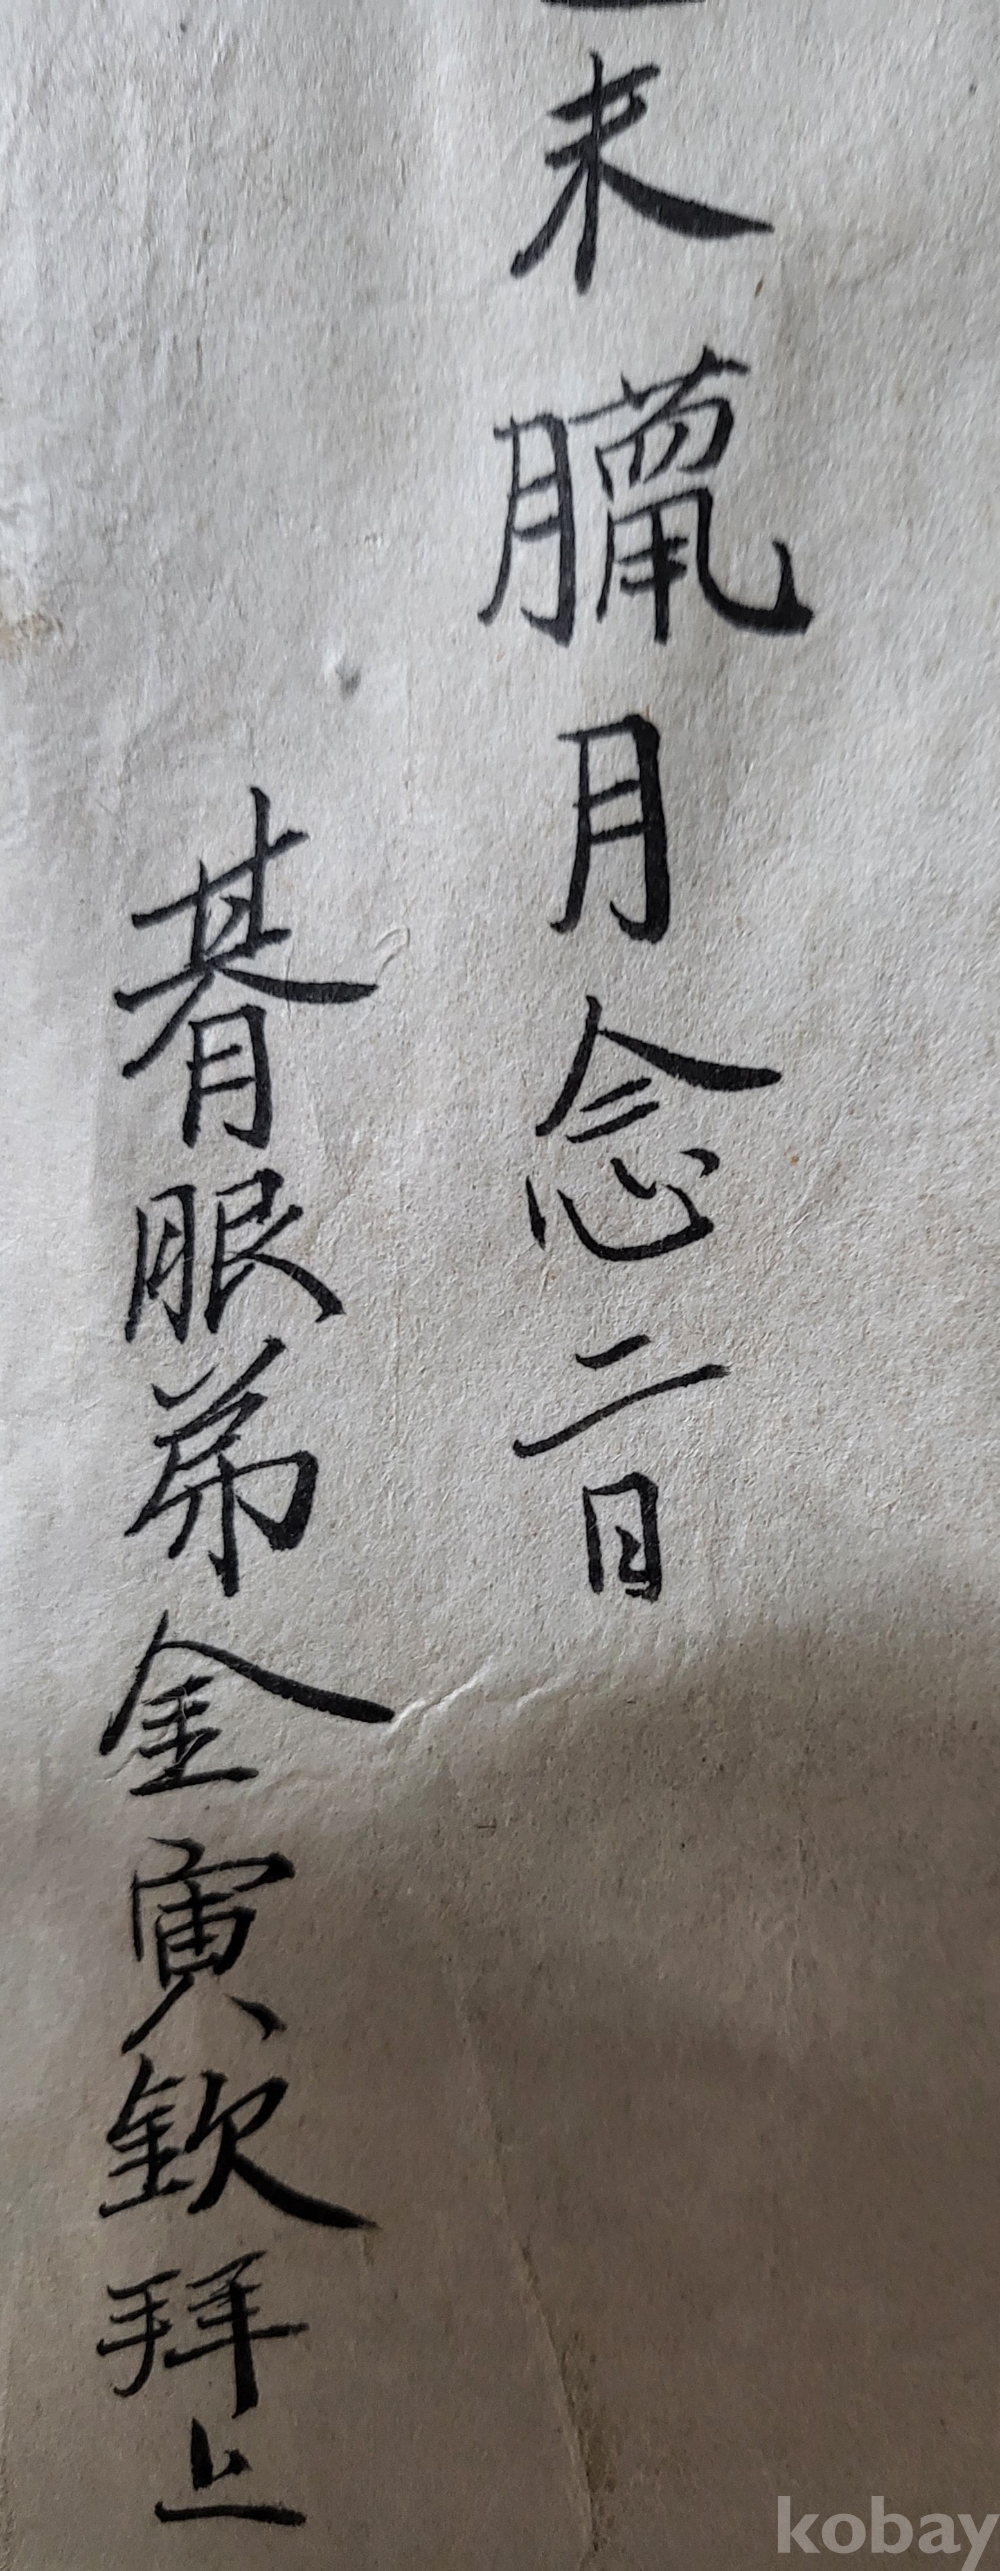 未臘月念二日
朞服弟金寅欽拜上
kobay